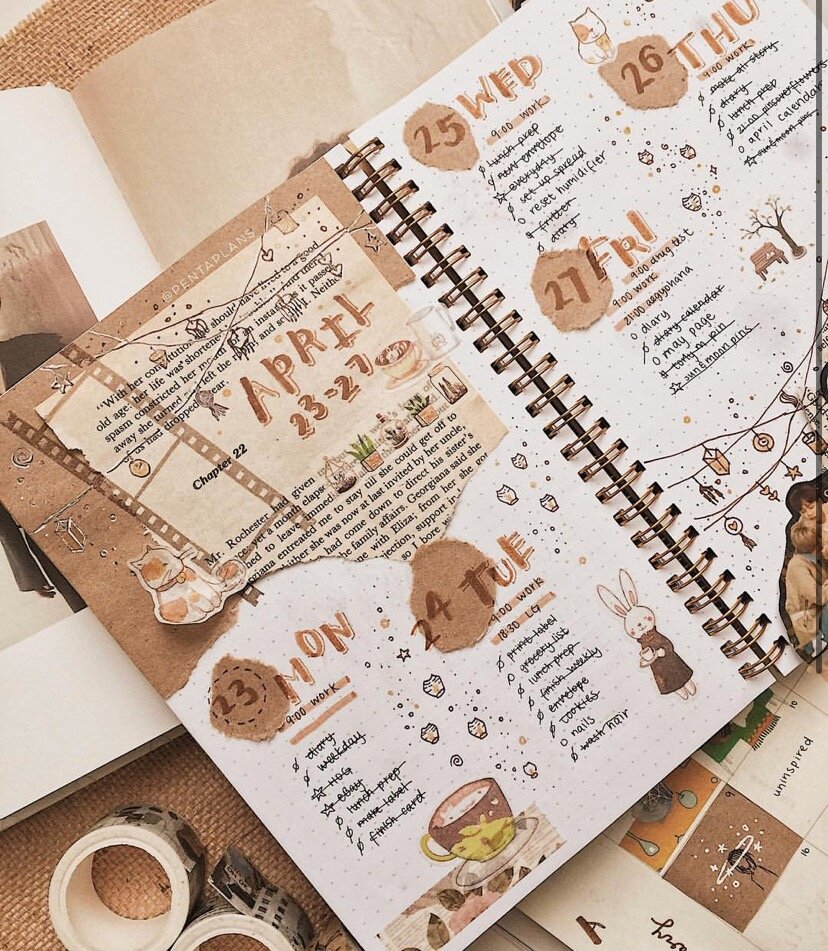 @PENTAPLANS
"With her
old age, her life was shortened
spasm constricted her
away she turned
us had dropped
should have lived to a good
instant it passed
left the
tear.
APRIL
23-27
Chapter 22
Mr. Rochester had given
a month elapsed
to leave immed
entreated me to stay till she could get off to
she was now at last invited by her uncle,
had come down to direct his sister's
the family affairs. Georgiana said she
with Eliza, from her she got
support in
23 MON
9:00 work
diary
weekday
HDG
ebay
lunch prep
make label
finish card
24 TUE
9:00 work
18:30 LG
print label
grocery list
lunch prep
finish weekly
envelope
cookies
nails
wash hair
25 WED
9:00 work
lunch prep
new envelope
everyday
set up spread
reset humidifier
diary
26 THU
9:00 work
diary
lunch prep
april calendar
sun&moon pins
27 FRI
9:00 drug test
9:00 work
21:00 aegyohana
diary
diary calendar
may page
sun&moon pins
uninspired
10
16